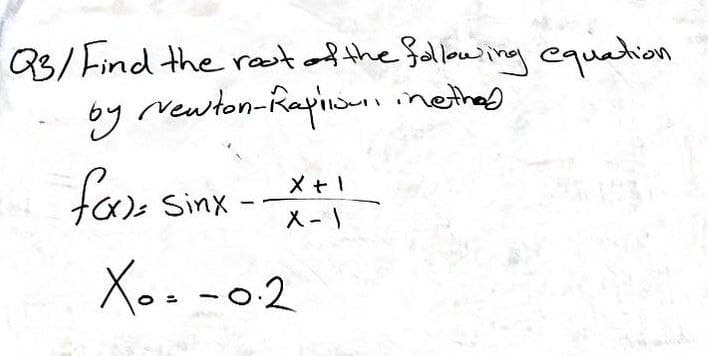 Q3/ Find the root of the following equation
by Newton-Raphson method
f(x)= sinx - x+1/x-1
X₀ = -0.2